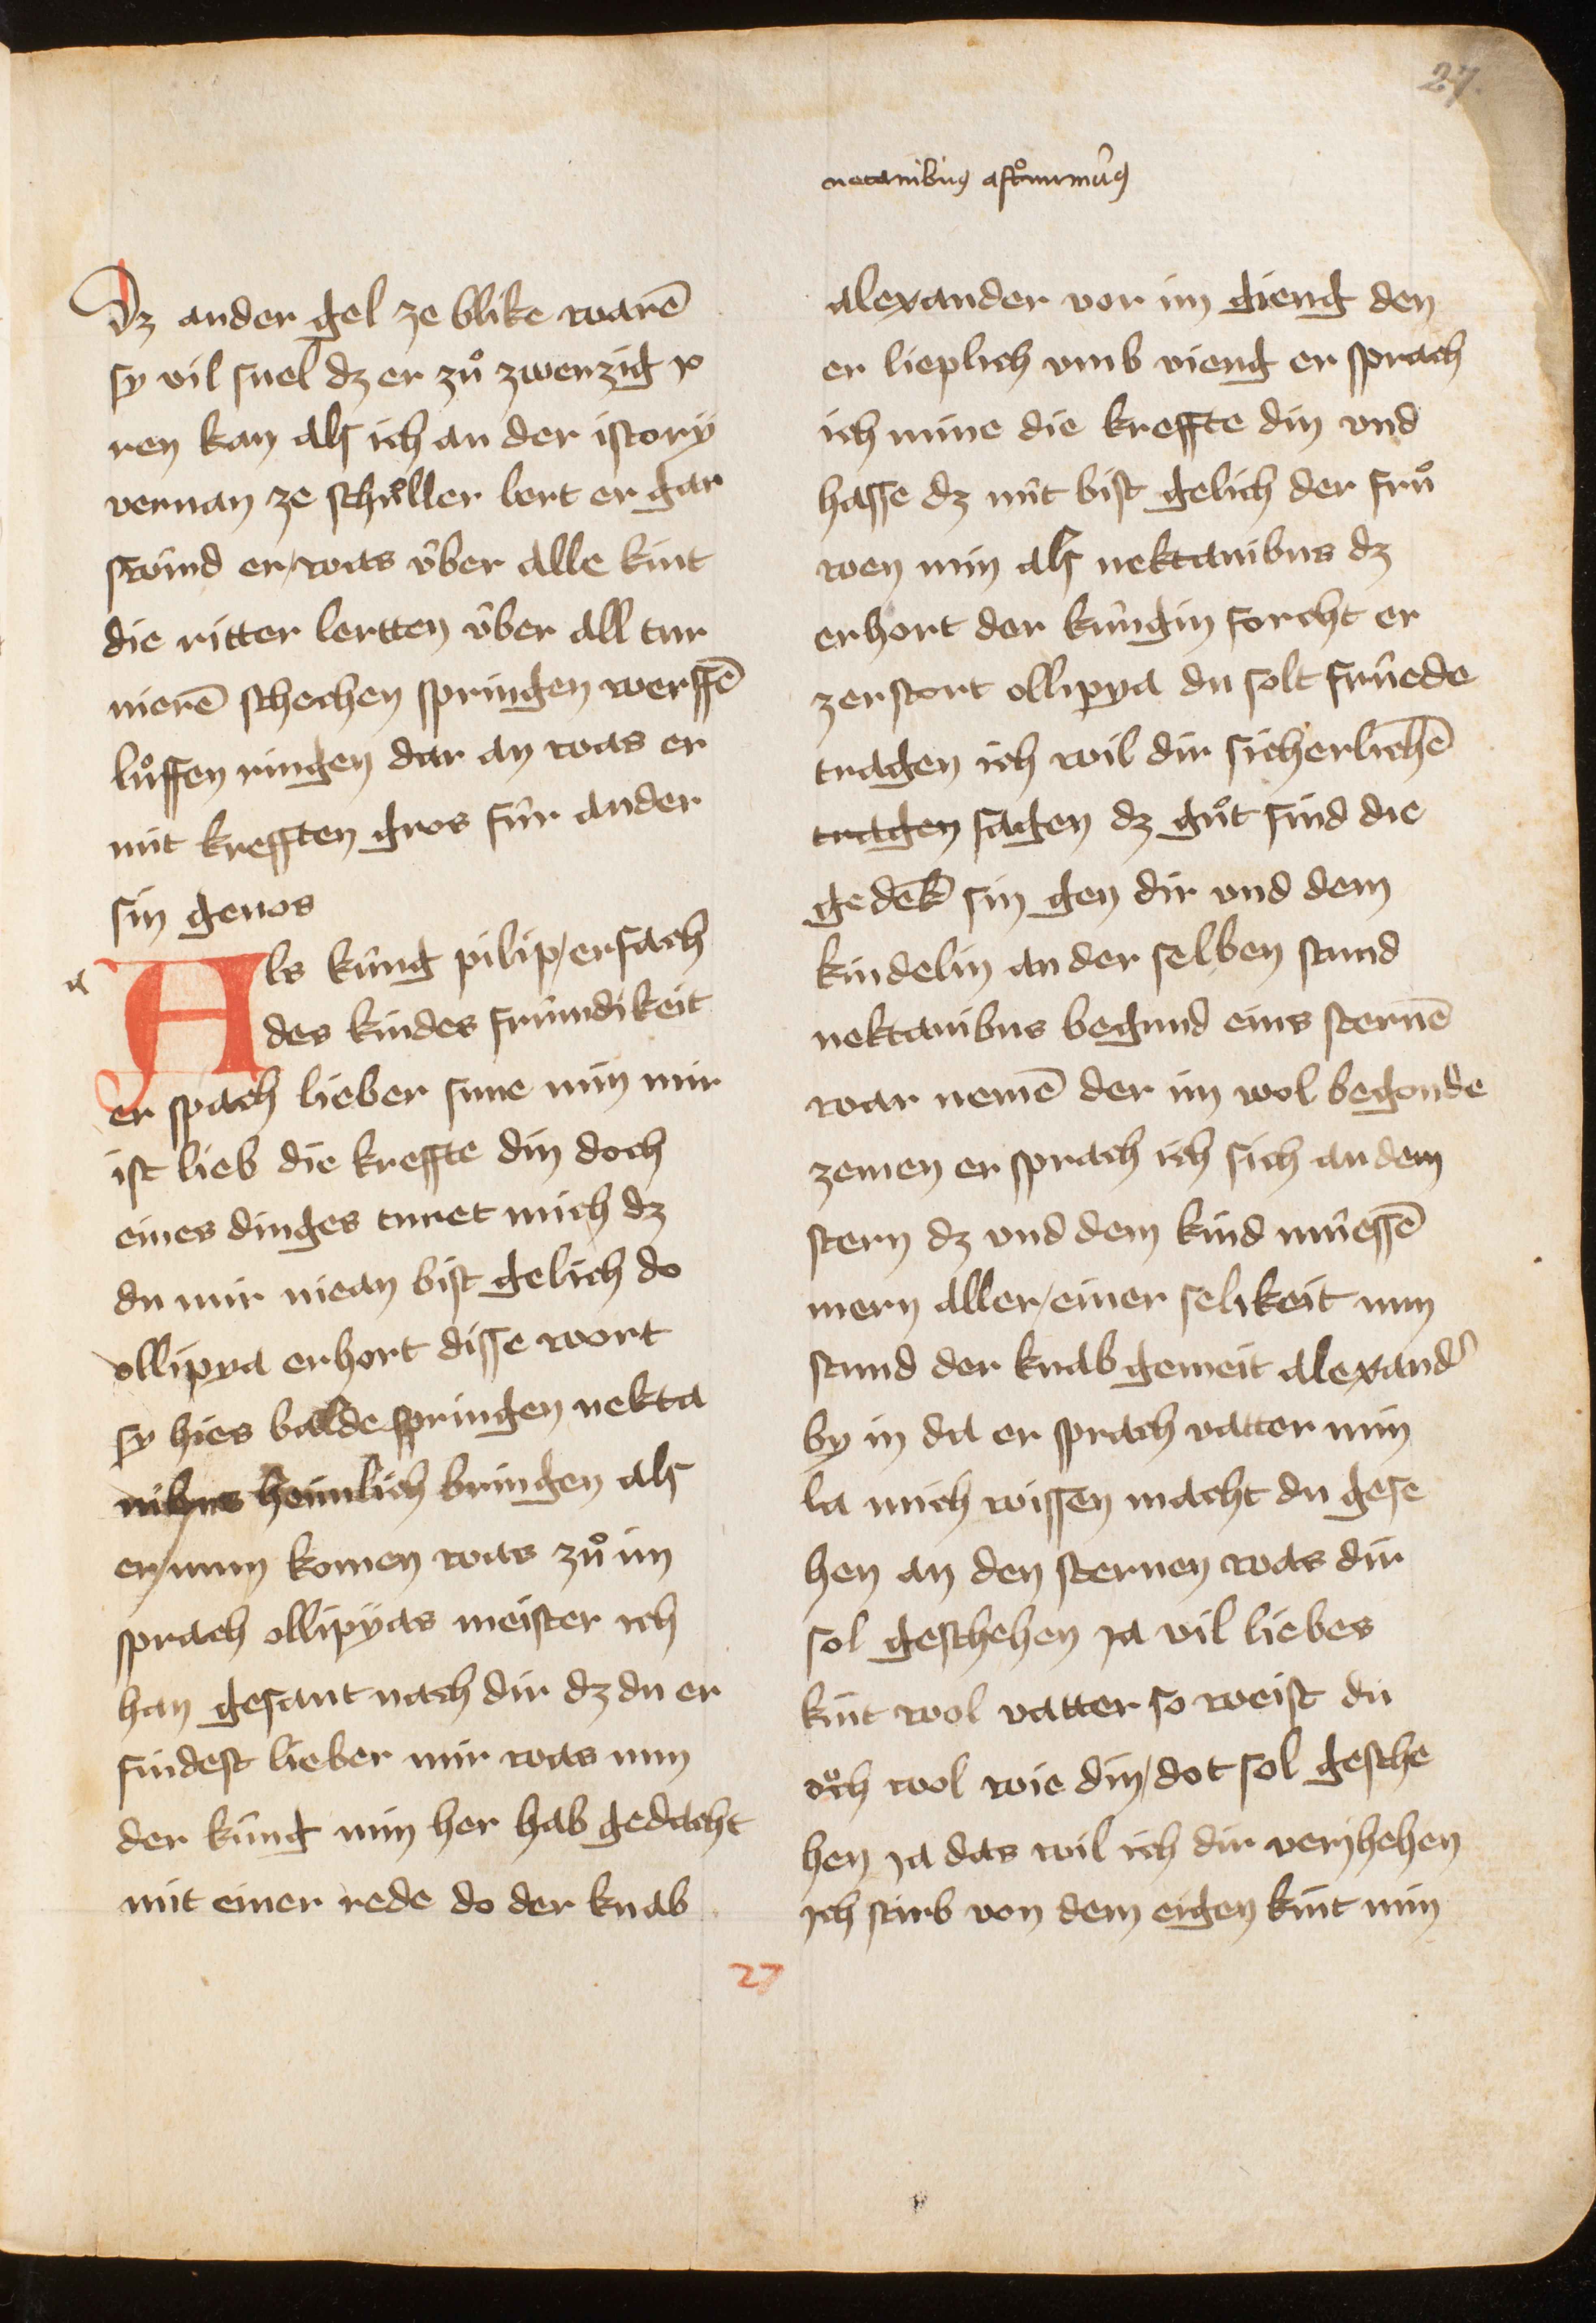 27.
nectanibus astronimus
Dz ander gel ze blike warē
sy vil snel dz er zuͦ zwenzig ro
ren kan als ich an der istory
vernan ze schuͦller lert er gar
swind er was über alle kint
die ritter lertten über all tur
nierē schechen springen werffē
luͦffen ringen dar an was er
mit krefften gros für ander
sin genos
Als küng pilip ersach
des kindes fründikeit
er spach lieber sune min mir
ist lieb die kreffte din doch
eines dinges turet mich dz
du mir niean bist gelich do
ollipya erhort disse wort
sy hies balde springen nekta
nibus heimlich bringen als
er nun komen was zuͦ im
sprach ollipyas meister ich
han gesant nach dir dz du er
findest lieber mir was nun
der küng min her hab gedacht
mit einer rede do der knab
alexander vor im gieng den
er lieplich vmb vieng er sprach
ich mine die kreffte din vnd
hasse dz nüt bist gelich der fruͦ
wen min als nektanibus dz
erhort der küngin forcht er
zerstort ollipya du solt früede
tragen ich wil dir sicherlichē
tragen sagen dz guͦt sind die
gedēk sin gen dir vnd dem
kindelin an der selben stund
nektanibus begund eins sternē
war nemē der im wol begonde
zemen er sprach ich sich an dem
stern dz vnd dem kind müessē
mern aller einer selikeit nun
stund der knab gemeit alexand'
by in da er sprach vatter min
la mich wissen macht du gese
hen an den sternen was dir
sol geschehen ja vil liebes
kint wol vatter so weist du
oͮch wol wie din dot sol gesche
hen ja das wil ich dir verjhehen
ich stirb von dem eigen kint min
27